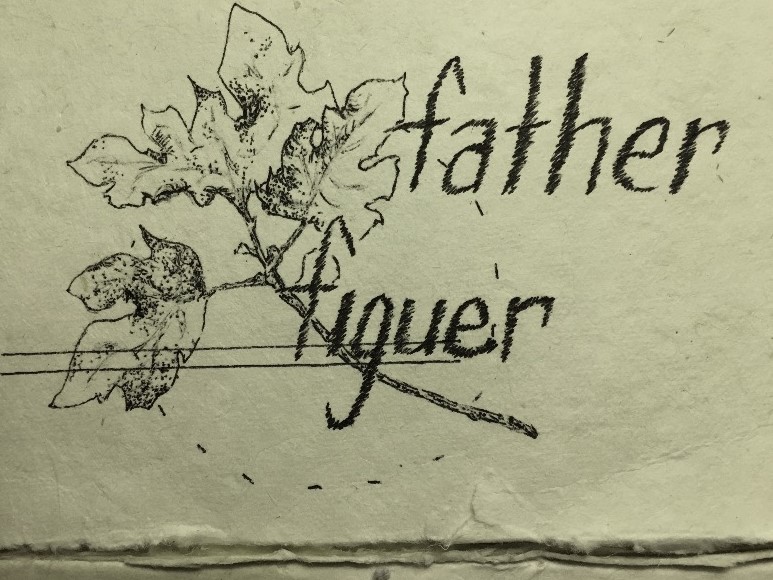 father
figuer